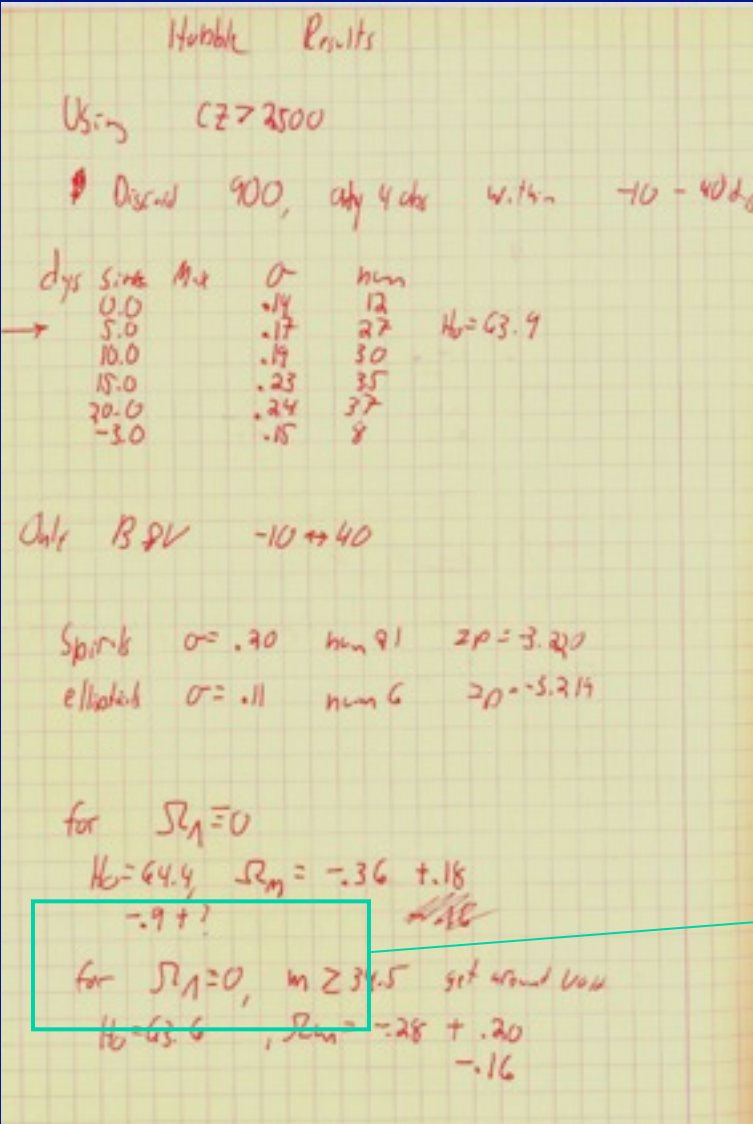 Hubble Results
Using CZ > 2500
Discard 900, only 4 obs within -10 - 40 d
dys since Max σ num
0.0 .14 12
5.0 .17 27 H₀=63.9
10.0 .19 30
15.0 .23 35
20.0 .24 37
-3.0 .15 8
Only B & V -10 ↔ 40
Spirals σ= .20 num 21 zp = -3.220
ellipticals σ= .11 num 6 zp = -3.214
for ΩΛ=0
H₀=64.4, Ωm = -.36 +.18
-.9 + ?
for ΩΛ=0, m ≥ 34.5 get around void
H₀=63.6, Ωm = -.28 + .20
-.16